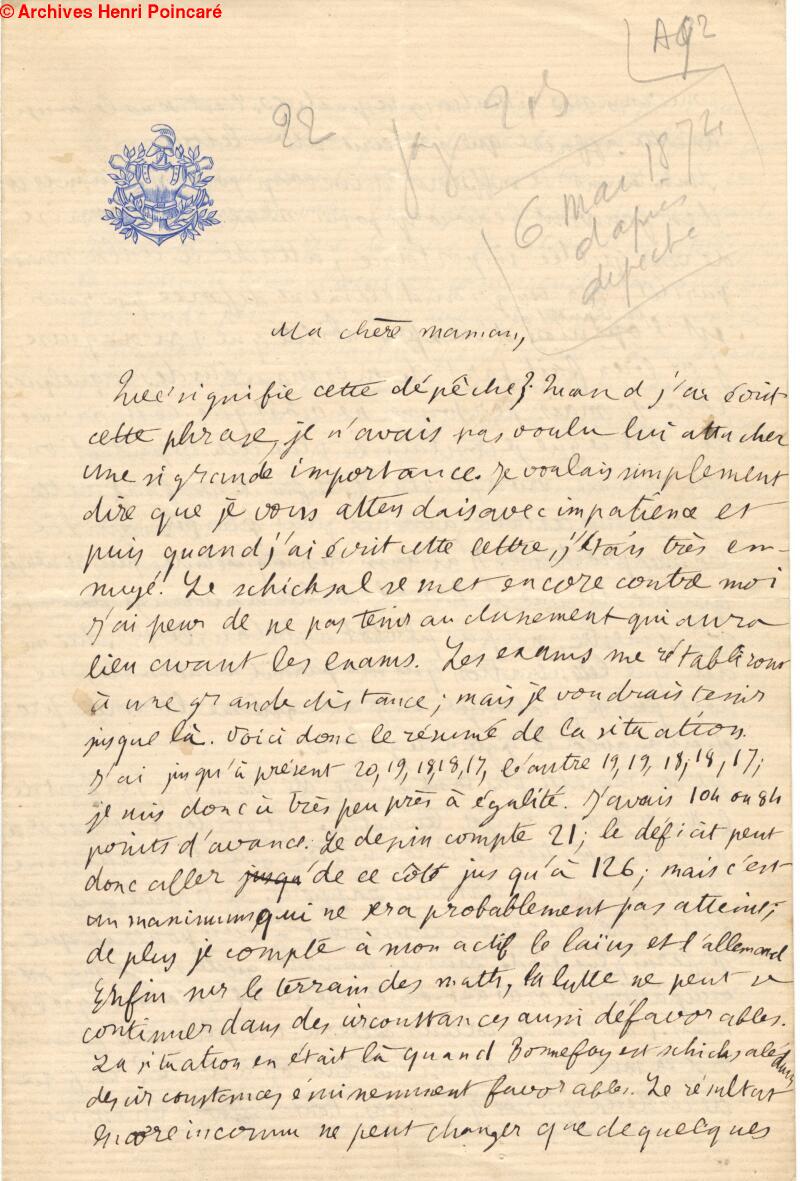 © Archives Henri Poincaré
A92
22
6 mai 1874
d'après
dépêche
Ma chère maman,
Que signifie cette dépêche? Quand j'ai écrit
cette phrase, je n'avais pas voulu lui attacher
une si grande importance. Je voulais simplement
dire que je vous attendais avec impatience et
puis quand j'ai écrit cette lettre, j'étais très en-
nuyé. Le schicksal se met encore contre moi
j'ai peur de ne pas tenir au classement qui aura
lieu avant les exams. Les exams me rétabliront
à une grande distance; mais je voudrais tenir
jusque là. Voici donc le résumé de la situation.
J'ai jusqu'à présent 20, 19, 18, 18, 17, l'autre 19, 19, 18, 18, 17;
je suis donc à très peu près à égalité. J'avais 104 ou 84
points d'avance. Le dessin compte 21; le déficit peut
donc aller jusqu' de ce côté jusqu'à 126; mais c'est
un maximum qui ne sera probablement pas atteint;
de plus je compte à mon actif le laïus et l'allemand
Enfin sur le terrain des math, la lutte ne peut se
continuer dans des circonstances aussi défavorables.
La situation en était là quand Bonnefoy est schicksalé dans
des circonstances éminemment favorables. Le résultat
encore inconnu ne peut changer que de quelques